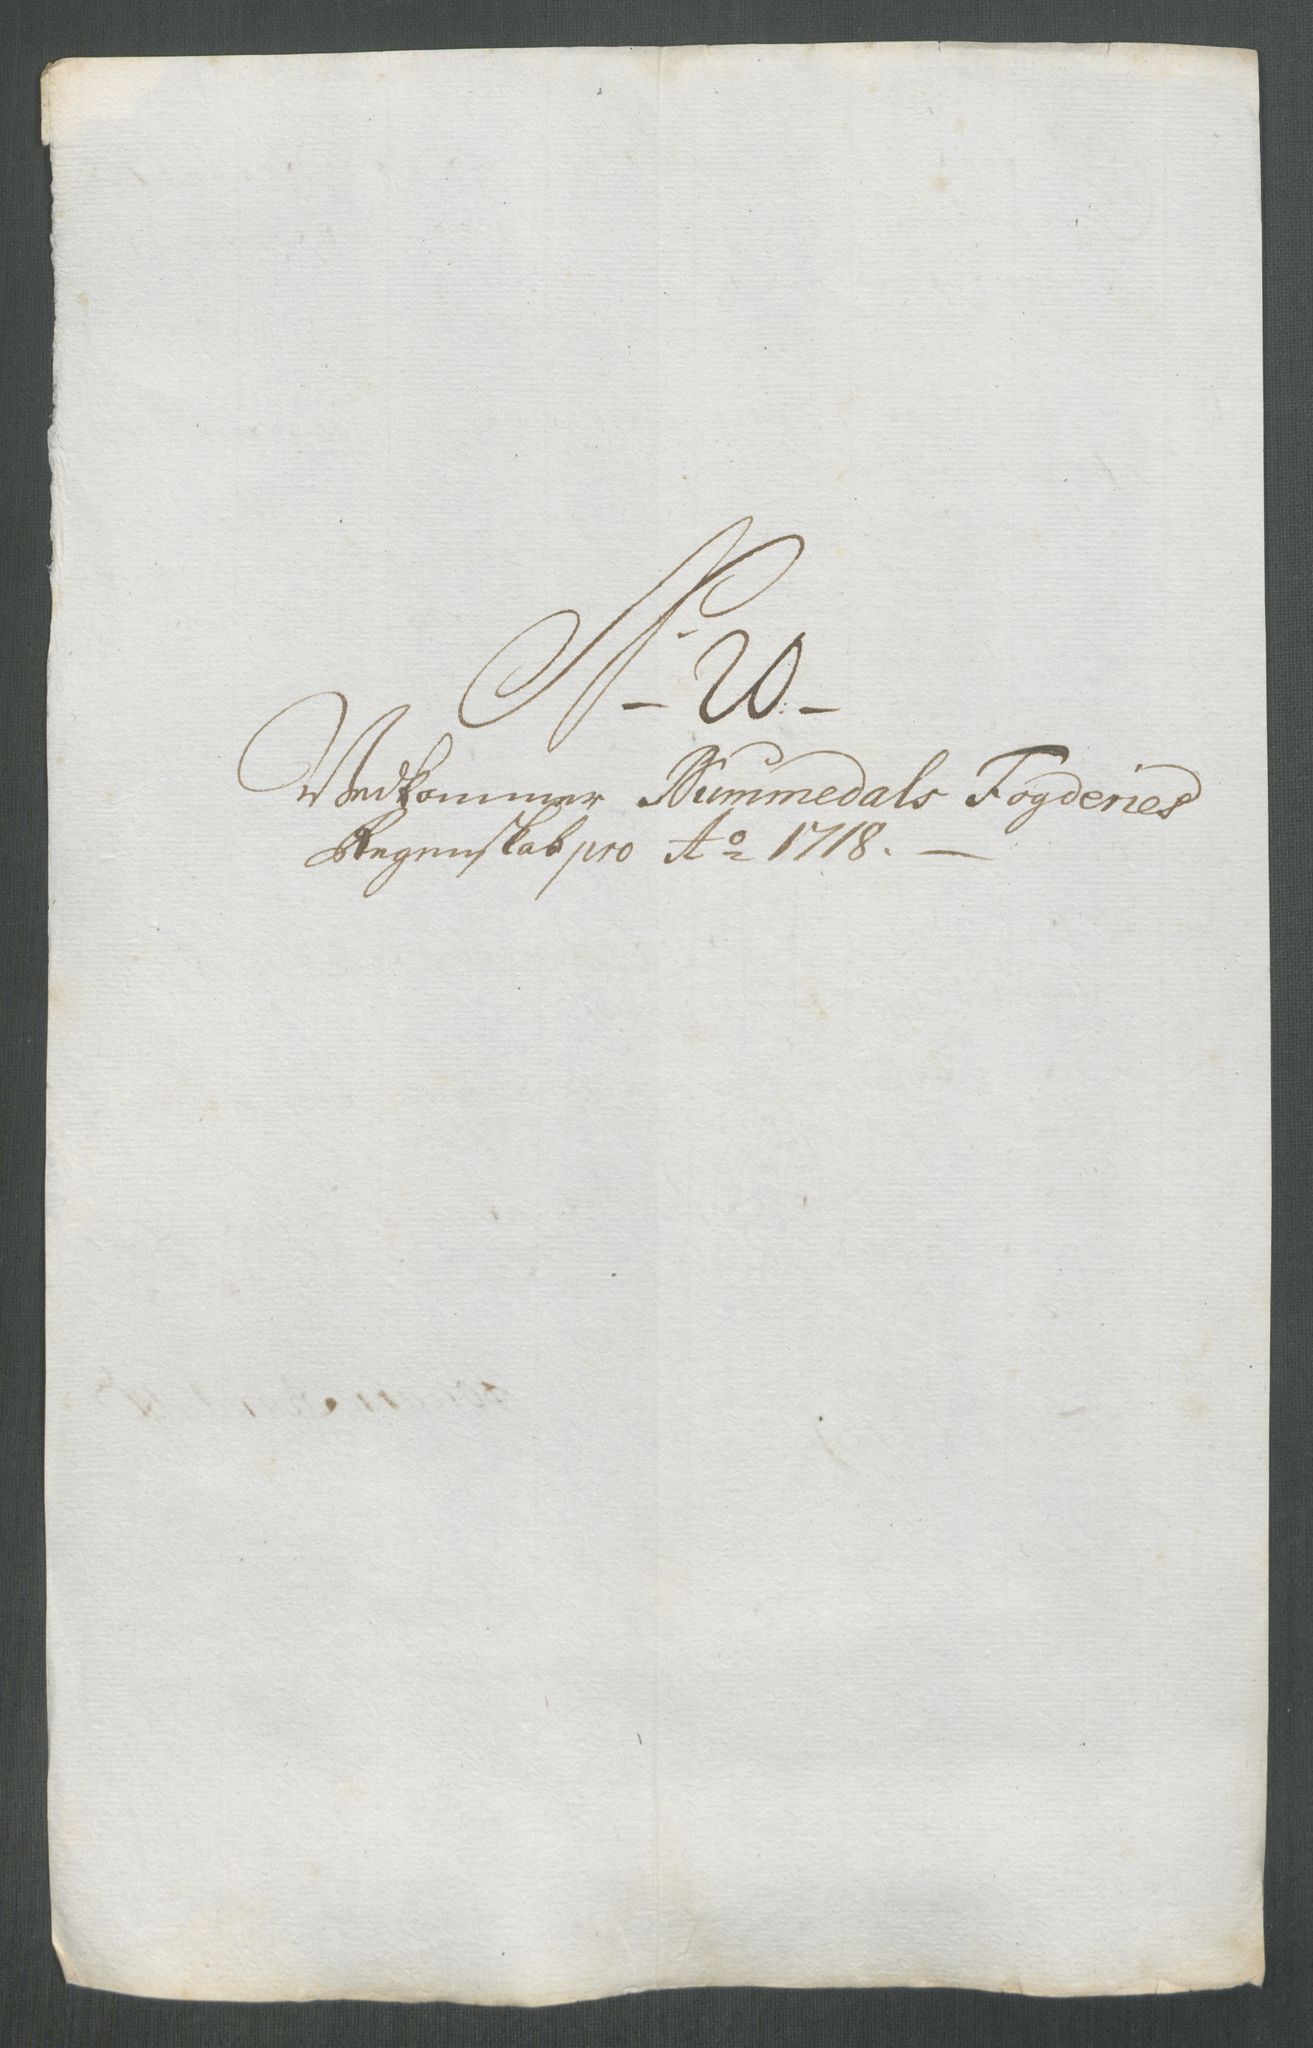 N. - 20. -
Vedkommer Nummedals Fogderies
Regenskab pro Ao 1718. -